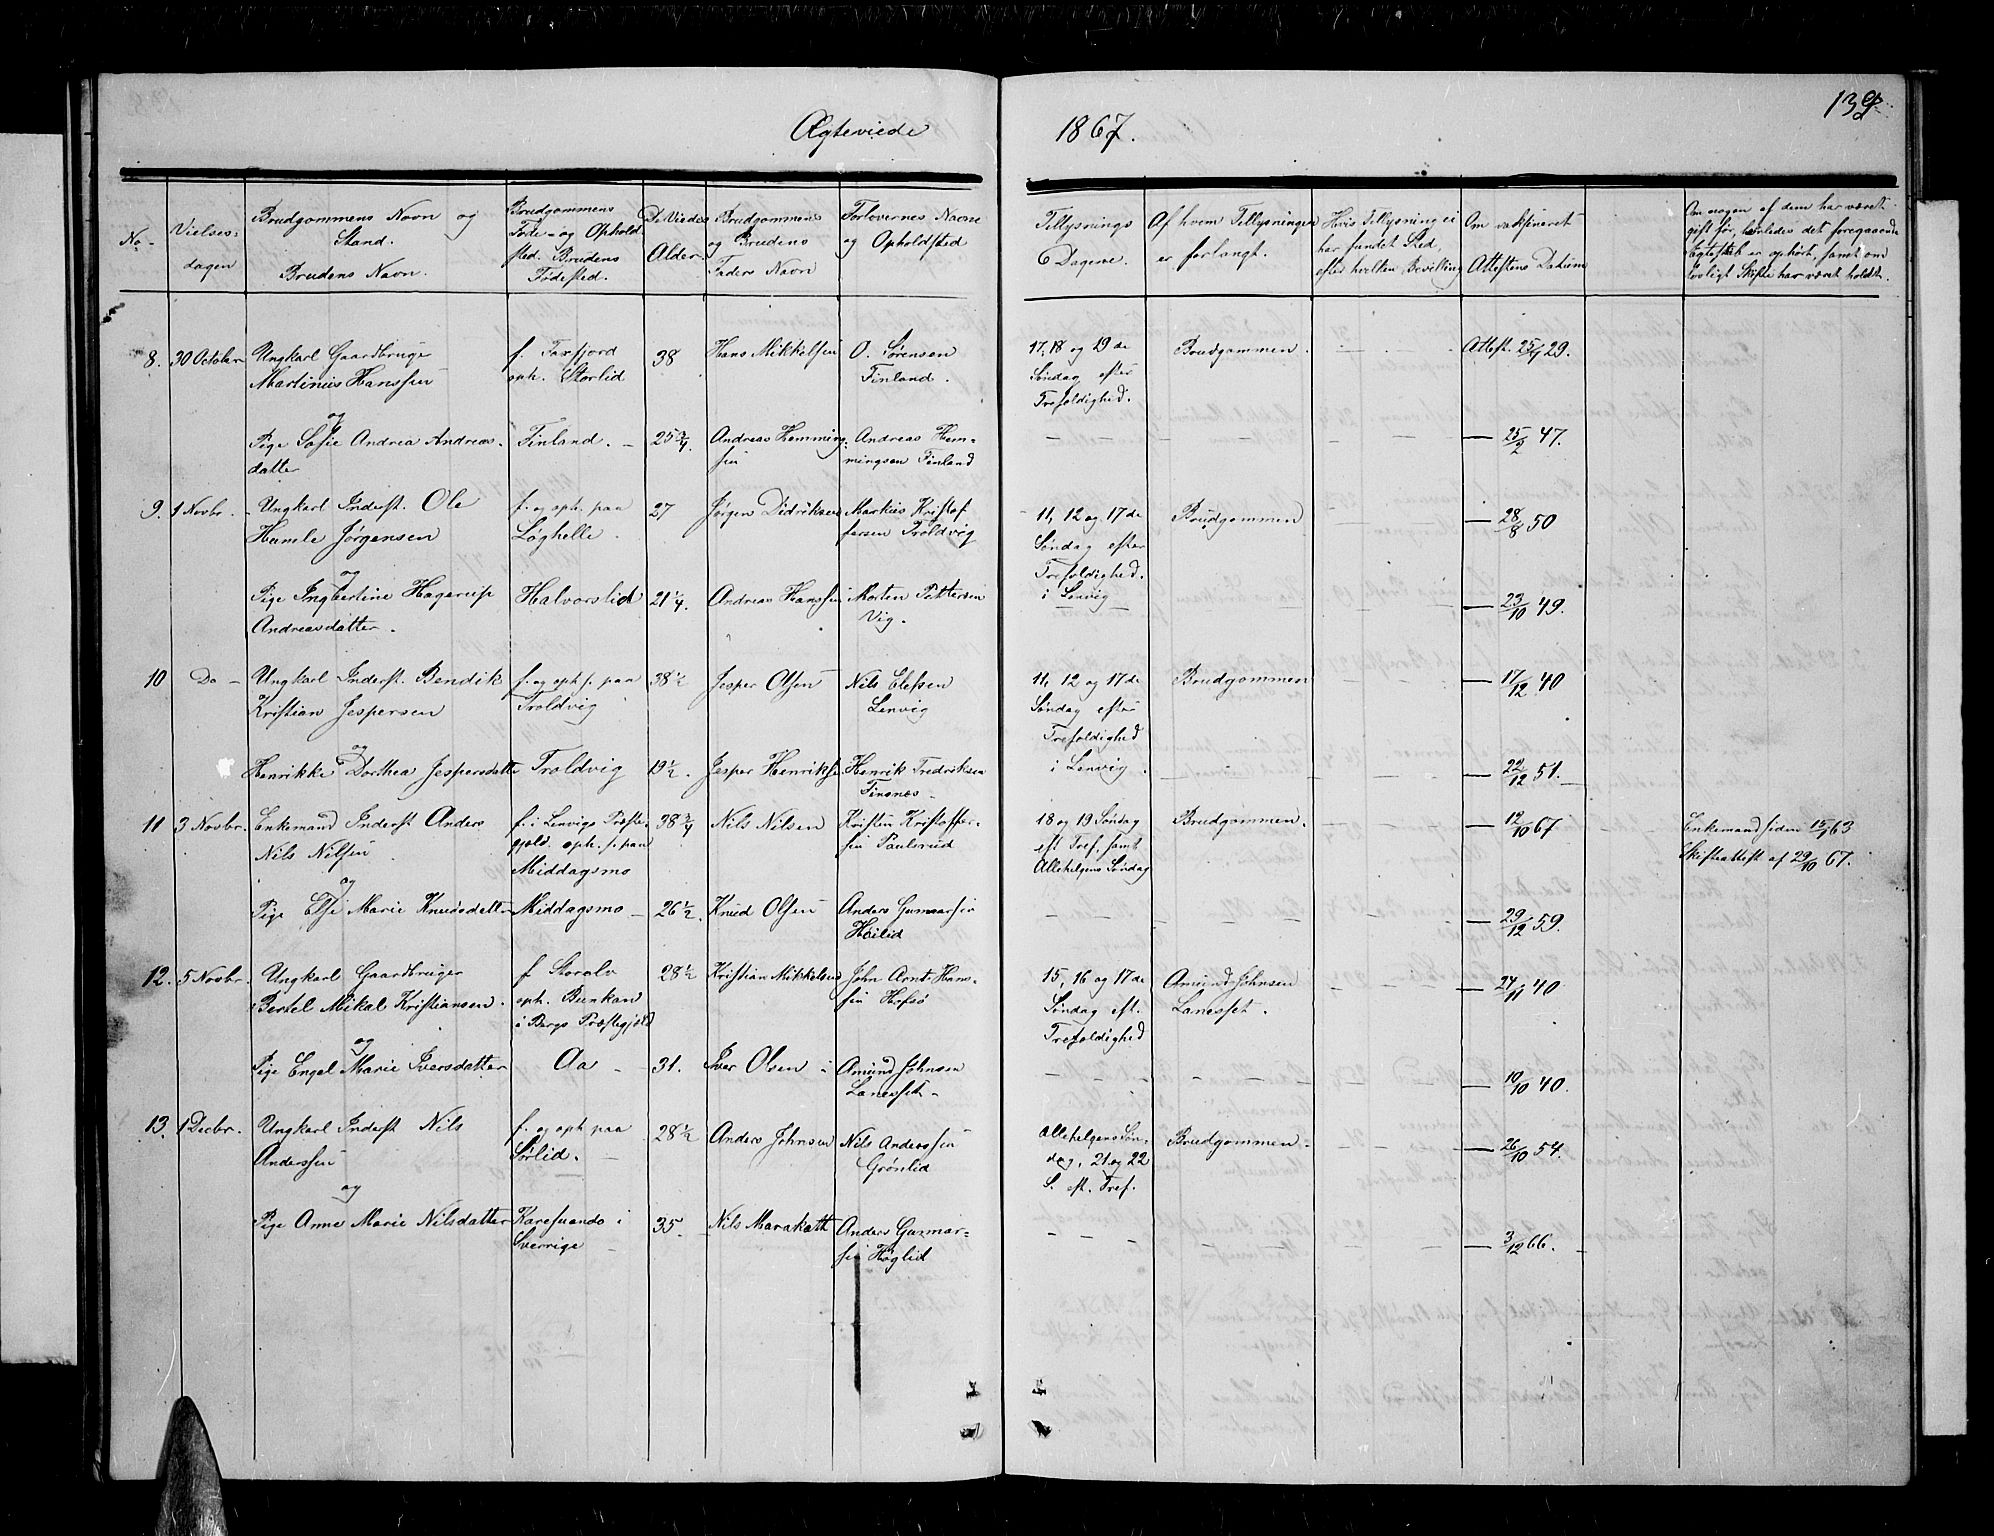 139
Ægteviede
1867.
No
Vielses-
dagen
Brudgommens Navn og
Stand.
Brudens Navn.
Brudgommens
Føde- og Ophold
sted. Brudens
Fødested.
De Viedes
Alder.
Brudgommens
og Brudens
Faders Navn
Forlovernes Navne
og Opholdsted
Tillysnings
Dagene.
Af hvem Tillysningen
er forlangt.
Hvis Tillysning ei
har fundet Sted,
efter hvilken Bevilling
Om vakcineret
Attestens Datum
Om nogen af dem har været
gift før, hvorledes det foregaaende
Egteskab er ophørt, samt om
lovligt Skifte har været holdt.
8. 30 October
Ungkarl Gaardbruger
Martinus Hanssen
f. Faxfjord
oph. Storlid
38
Hans Mikkelsen
O. Sørensen
Finland.
17, 18 og 19 de
Søndag efter
Trefoldighed.
Brudgommen.
Attest. 25/9 29.
og
Pige Sofie Andrea Andreas-
datter
Finland.
25 3/4.
Andreas Hemming-
sen
Andreas Hem-
mingsen Finland
25/2 47.
9. 1 Novbr.
Ungkarl Inderst. Ole
Hamle Jørgensen
f. og oph. paa
Løghelle.
27
Jørgen Didriksen
Markus Kristof
fersen Troldvig
11, 12 og 17 de
Søndag efter
Trefoldighed.
i Lenvig
Brudgommen
28/8 50
og
Pige Ingbertine Hagerup
Andreasdatter.
Halvorslid
21 1/4.
Andreas Hanssen
Morten Pettersen
Vig.
23/10 49.
10 Do
Ungkarl Inderst. Bendik
Kristian Jespersen
f. og oph. f. paa
Troldvig
38 1/2
Jesper Olsen
Nils Elefsen
Lenvig
11, 12 og 17 de
Søndag efter
Trefoldighed
i Lenvig
Brudgommen
17/12 40
og
Henrikke Dorthea Jespersdatter
Troldvig
19 1/2.
Jesper Henriksen
Henrik Fredriksen
Finsnes
22/12 51.
11 3 Novbr.
Enkemand Inderst Anders
Nils Nilsen
f. i Lenvigs Præste-
gjeld. oph. f. paa
Middagsmo
38 3/4
Nils Nilsen
Kristen Kristoffer-
sen Paulsrud
18 og 19 Søndag
eft Tref. samt
Allehelgens Søndag
Brudgommen.
12/10 67
Enkemand siden 15/1 63
Skifteattest af 29/10 67.
og
Pige Else Marie Knudsdatter
Middagsmo
26 1/2.
Knud Olsen
Anders Gunnarsen
Høilid
29/12 59.
12. 5 Novbr.
Ungkarl Gaardbruger
Bertel Mikal Kristiansen.
f Storelv
oph. Bunkan
i Bergs Præstegjeld
28 1/2
Kristian Mikkelsen
John Arnt Hans-
sen Hofsø
15, 16 og 17 de
Søndag eft.
Trefoldighed
Amund Johnsen
Lanesset.
24/11 40
og
Pige Engel Marie Iversdatter
Aa
31.
Iver Olsen
Amund Johnsen
Lanesset
10/10 40.
13. 1 Decbr.
Ungkarl Inderst Nils
Anderssen
f. og oph paa
Sørlid.
28 1/2
Anders Johnsen
Nils Anderssen
Grønlid
Allehelgens Søn-
dag, 21 og 22
S. eft. Tref.
Brudgommen.
26/10 54.
og
Pige Anne Marie Nilsdatter
Karesuando i
Sverrige
35.
Nils Marakatt
Anders Gunnar-
sen Høglid
3/12 66.